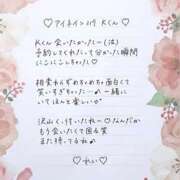 ♡アイネイン219 Kくん♡
Kくん会いたかったー(泣)
予約してくれたって分かった瞬間
にこにこしちゃった♡
相変わらずめちゃめちゃ面白くて
笑いすぎちゃった♪一緒に
いてほんと楽しい♡
沢山くっ付いたねー♡なんだか
もう会いたくて困る笑
また待ってるね
♡れい♡